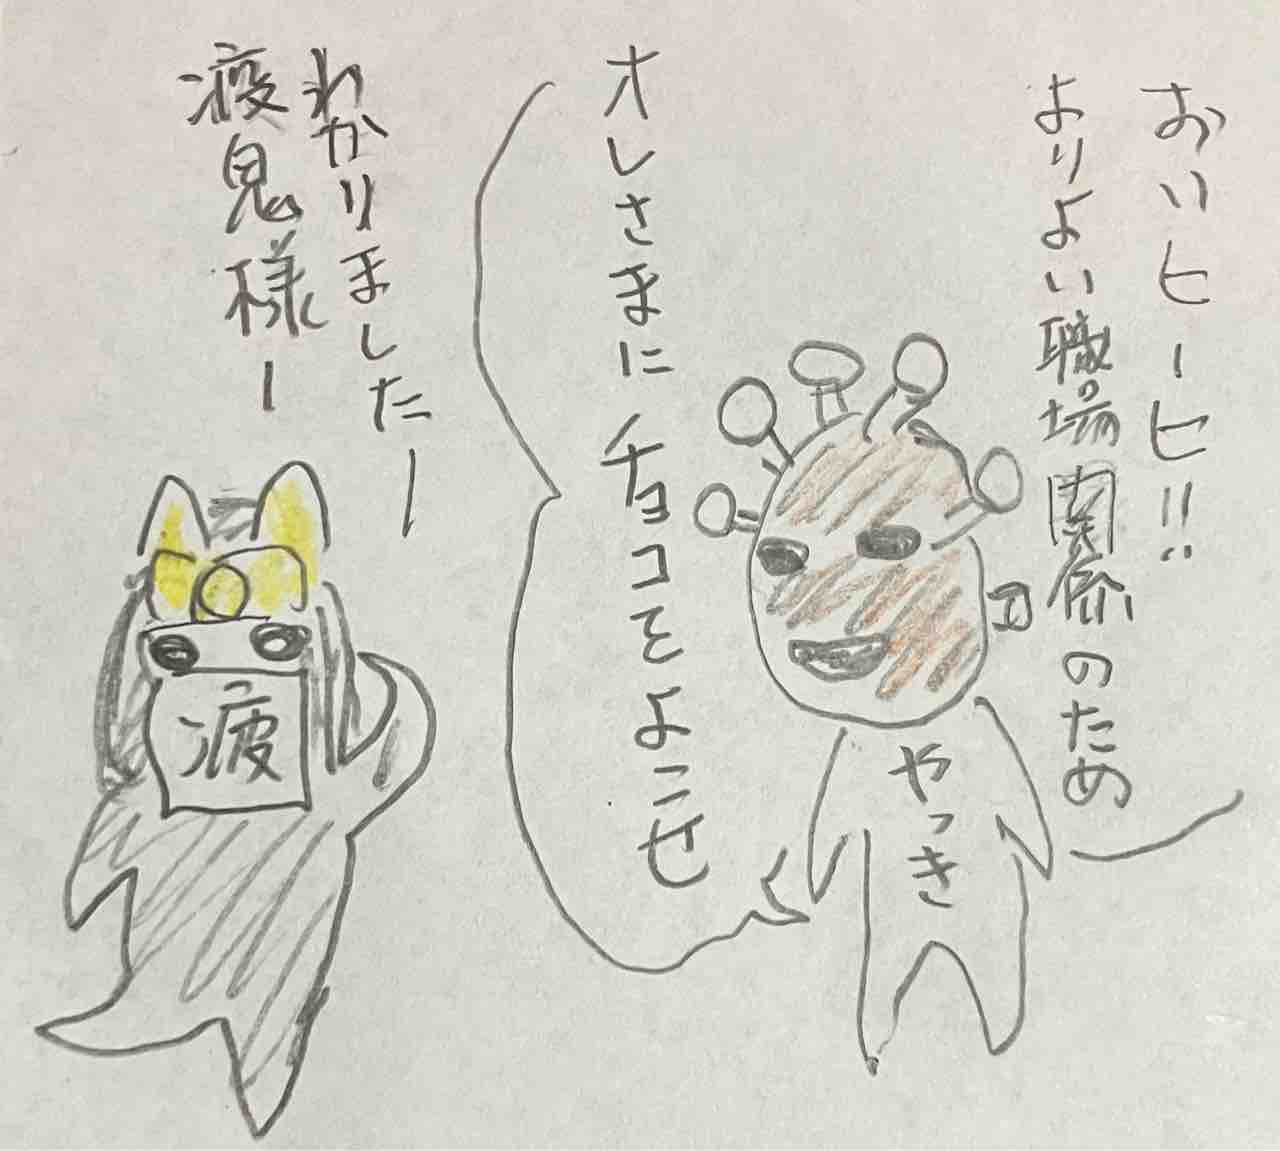 おいヒーヒ!!
よりよい職場関係のため
オレさまにチョコをよこせ
やっき
わかりましたー
疫鬼様ー
疲